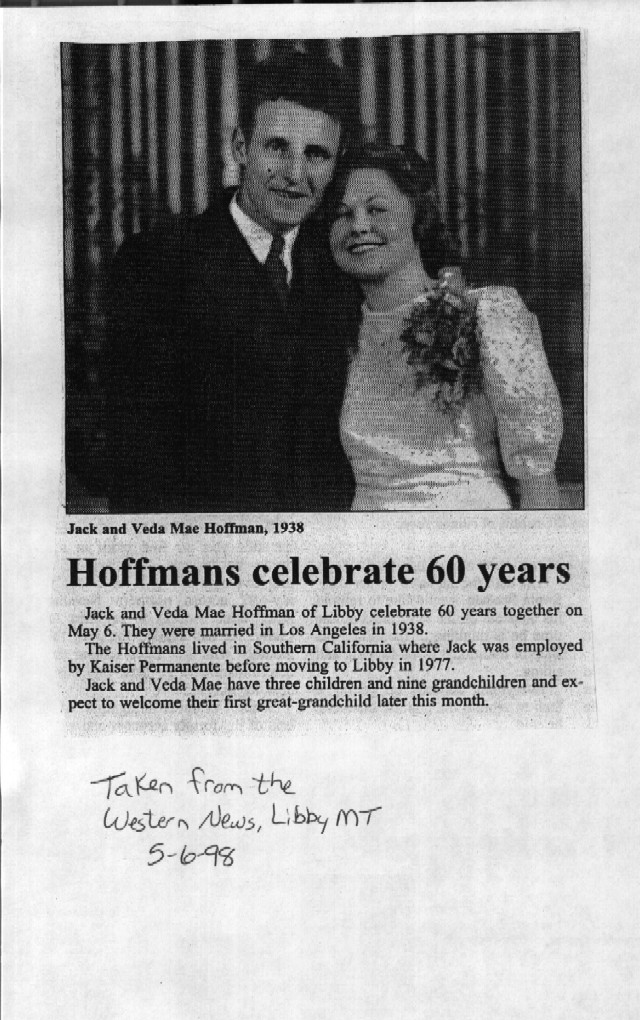 Jack and Veda Mae Hoffman, 1938
Hoffmans celebrate 60 years
Jack and Veda Mae Hoffman of Libby celebrate 60 years together on
May 6. They were married in Los Angeles in 1938.
The Hoffmans lived in Southern California where Jack was employed
by Kaiser Permanente before moving to Libby in 1977.
Jack and Veda Mae have three children and nine grandchildren and ex-
pect to welcome their first great-grandchild later this month.
Taken from the
Western News, Libby MT
5-6-98